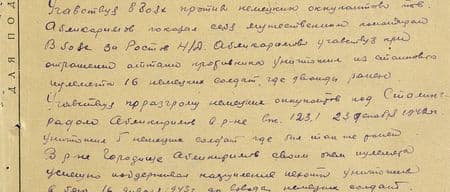 Участвуя в боях против немецких оккупантов тов.
Абликаримов показал себя мужественным командиром
В боях за Ростов Н/Д. Абликаримов участвуя при
отражении контратаки противника уничтожил из станкового
пулемета 16 немецких солдат, где дважды ранен
Участвуя при разгроме немецких оккупантов под Сталин-
градом Абликаримов в р-не выс. 123,1 23 декабря 1942 г.
уничтожил 5 немецких солдат где был так же ранен
В р-не Городище Абликаримов своим огнем пулемета
успешно поддерживал наступление пехоты уничтожив
в бою 16 января 1943 г. до взвода немецких солдат.
ДЛЯ ПОД